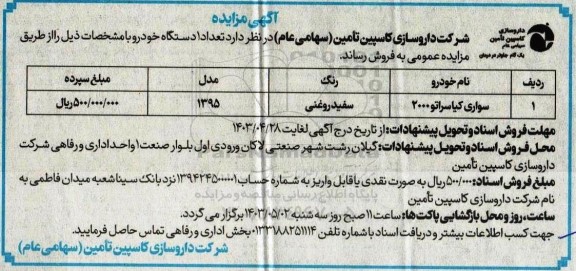 آگهی مزایده
داروسازی
کاسپین تأمین
سهامی عام
یک گام جلوتر در درمان
شرکت داروسازی کاسپین تامین (سهامی عام) در نظر دارد تعداد ۱ دستگاه خودرو با مشخصات ذیل را از طریق
مزایده عمومی به فروش رساند.
ردیف نام خودرو رنگ مدل مبلغ سپرده
۱ سواری کیا سراتو ۲۰۰۰ سفید روغنی ۱۳۹۵ ۵۰۰/۰۰۰/۰۰۰ ریال
مهلت فروش اسناد و تحویل پیشنهادات: از تاریخ درج آگهی لغایت ۱۴۰۳/۰۴/۲۸
محل فروش اسناد و تحویل پیشنهادات: گیلان رشت شهر صنعتی لاکان ورودی اول بلوار صنعت ۱ واحد اداری و رفاهی شرکت
داروسازی کاسپین تأمین
مبلغ فروش اسناد: ۵۰۰/۰۰۰ ریال به صورت نقدی یا قابل واریز به شماره حساب ۱۳۹۴۲۴۵۰۰۰۰۰۱ نزد بانک سینا شعبه میدان فاطمی به
نام شرکت داروسازی کاسپین تأمین
ساعت، روز و محل بازگشایی پاکت‌ها: ساعت ۱۱ صبح روز سه شنبه ۱۴۰۳/۰۵/۰۲ برگزار می گردد.
جهت کسب اطلاعات بیشتر و دریافت اسناد با شماره تلفن ۰۱۳۳۱۸۸۲۵۱۱۱۴ بخش اداری و رفاهی تماس حاصل فرمایید.
شرکت داروسازی کاسپین تأمین (سهامی عام)